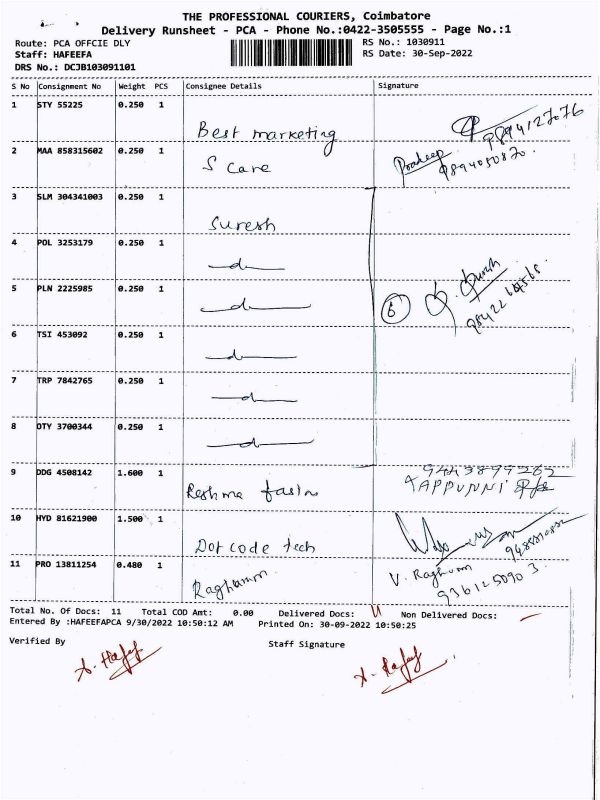 THE PROFESSIONAL COURIERS, Coimbatore
Delivery Runsheet - PCA - Phone No.:0422-3505555 - Page No.:1
Route: PCA OFFCIE DLY
Staff: HAFEEFA
DRS No.: DCJB103091101
RS No.: 1030911
RS Date: 30-Sep-2022
S No Consignment No Weight PCS Consignee Details Signature
1 STY 55225 0.250 1
Best marketing 9894127076
2 MAA 858315602 0.250 1
S care Pradeep
3 SLM 304341003 0.250 1
Suresh
4 POL 3253179 0.250 1
do
5 PLN 2225985 0.250 1
do 6
6 TSI 453092 0.250 1
do
7 TRP 7842765 0.250 1
do
8 OTY 3700344 0.250 1
do
9 DDG 4508142 1.600 1
Reshma
10 HYD 81621900 1.500 1
Dot code tech
11 PRO 13811254 0.480 1
V.
Total No. Of Docs: 11 Total COD Amt: 0.00 Delivered Docs: 11 Non Delivered Docs: -
Entered By :HAFEEFAPCA 9/30/2022 10:50:12 AM Printed On: 30-09-2022 10:50:25
Verified By Staff Signature